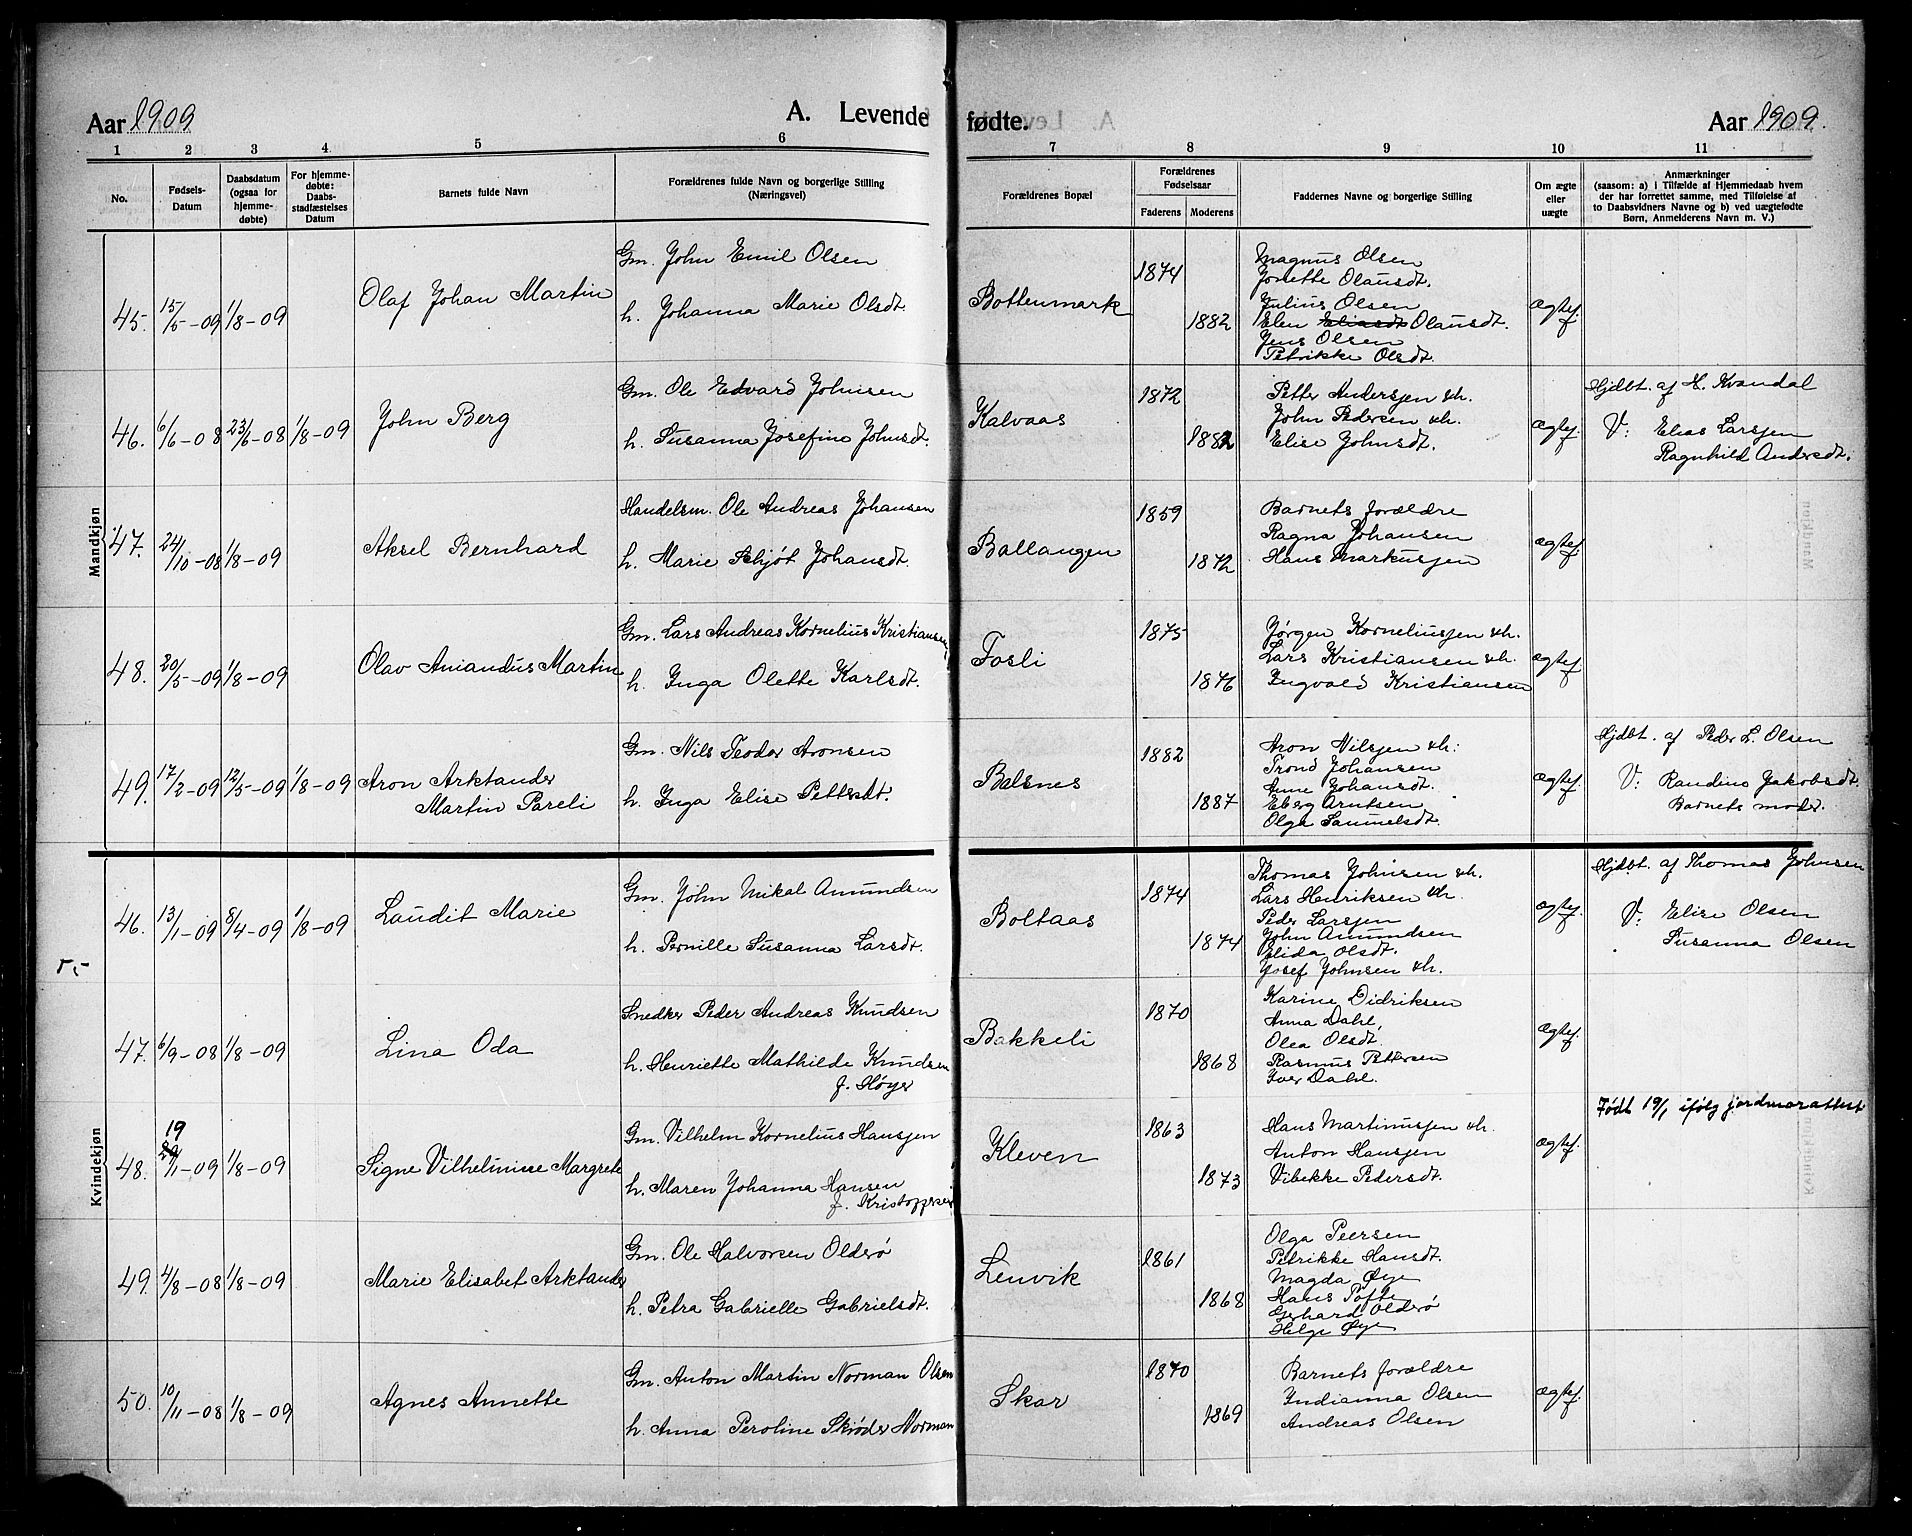 Aar 1909
A. Levende fødte.
Aar 1909.
1 2 3 4 5 6 7 8 9 10 11
No.
Fødsels-
Datum
Daabsdatum
(ogsaa for
hjemme-
døbte)
For hjemme-
døbte:
Daabs-
stadfæstelses
Datum
Barnets fulde Navn
Forældrenes fulde Navn og borgerlige Stilling
(Næringsvei)
Forældrenes Bopæl
Forældrenes
Fødselsaar
Faderens Moderens
Faddernes Navne og borgerlige Stilling
Om ægte
eller
uægte
Anmærkninger
(saasom: a) i Tilfælde af Hjemmedaab hvem
der har forrettet samme, med Tilføielse af
to Daabsvidners Navne og b) ved uægtefødte
Børn, Anmelderens Navn m. V.)
Mandkjøn
45. 15/5-09 1/8-09
Olaf Johan Martin
Gm. John Emil Olsen
h. Johanna Marie Olsdt.
Bottenmark
1874
1882
Magnus Olsen
Jonette Olausdt.
Julius Olsen
Elen Eliasdt Olausdt.
Jens Olsen
Petrikke Olsdt.
ægtef.
46. 6/6-08 23/6-08 1/8-09
John Berg
Gm. Ole Edvard Johnsen
h. Susanna Josefine Johnsdt.
Kalvaas
1872
1882
Petter Andersjen &h.
John Pedersen &h.
Elise Johnsdt.
ægtef.
Hjdbt. af H. Kvandal
V: Elias Larsjen
Ragnhild Andersdt.
47. 24/10-08 1/8-09
Aksel Bernhard
Handelsm. Ole Andreas Johansen
h. Marie Schjøt Johansdt.
Ballangen
1859
1872
Barnets forældre
Ragna Johansen
Hans Markusjen
ægtef.
48. 20/5-09 1/8-09
Olav Amandus Martin
Gm. Lars Andreas Kornelius Kristiansen
h. Inga Olette Karlsdt.
Fosli
1875
1876
Jørgen Korneliusjen &h.
Lars Kristiansen &h.
Ingvald Kristiansen
ægtef.
49. 17/2-09 12/5-09 1/8-09
Aron Arktander
Martin Pareli
Gm. Nils Teodor Aronsen
h. Inga Elise Pettersdt.
Balsnes
1882
1887
Aron Nilsjen &h:
Trond Johansen
Anne Johansdt.
Eberg Arntsen
Olga Samuelsdt.
ægtef.
Hjdbt. af Peder L. Olsen
V: Randine Jakobsdt.
Barnets moder.
Kvindekjøn
46. 13/1-09 8/4-09 1/8-09
Laudit Marie
Gm. John Mikal Amundsen
h. Pernille Susanna Larsdt.
Boltaas
1874
1874
Thomas Johnsen &h.
Lars Henriksen &h.
Peder Larsjen
John Amundsen
Elida Olsdt.
Josef Johnsen &h.
ægtef.
Hjdbt. af Thomas Johnsen
V: Elise Olsen
Susanna Olsen
47. 6/9-08 1/8-09
Lina Oda
Snedker Peder Andreas Knudsen
h. Henriette Mathilde Knudsen
f. Høyer
Bakkeli
1870
1868
Karine Didriksen
Anna Dahl,
Olea Olsdt.
Rasmus Pettersen
Iver Dahl.
ægtef.
48. 19
20/1-09 1/8-09
Signe Vilhelmine Margrete
Gm. Vilhelm Kornelius Hansjen
h. Maren Johanna Hansen
f. Kristoffersen
Kleven
1863
1873
Hans Martinusjen &h.
Anton Hansjen
Vibekke Pedersdt.
ægtef.
Født 19/1 ifølg jordmorattest
49. 4/8-08 1/8-09
Marie Elisabet Arktander
Gm. Ole Halvorsen Olderø
h. Petra Gabrielle Gabrielsdt.
Lenvik
1861
1868
Olga Peersen
Petrikke Hansdt.
Magda Øye
Hans Tofte
Gerhard Olderø
Helge Øye
50. 10/11-08 1/8-09
Agnes Annette
Gm. Anton Martin Norman Olsen
h. Anna Peroline Skrøder Norman
Skar
1870
1869
Barnets forældre
Indianna Olsen
Andreas Olsen
ægtef.